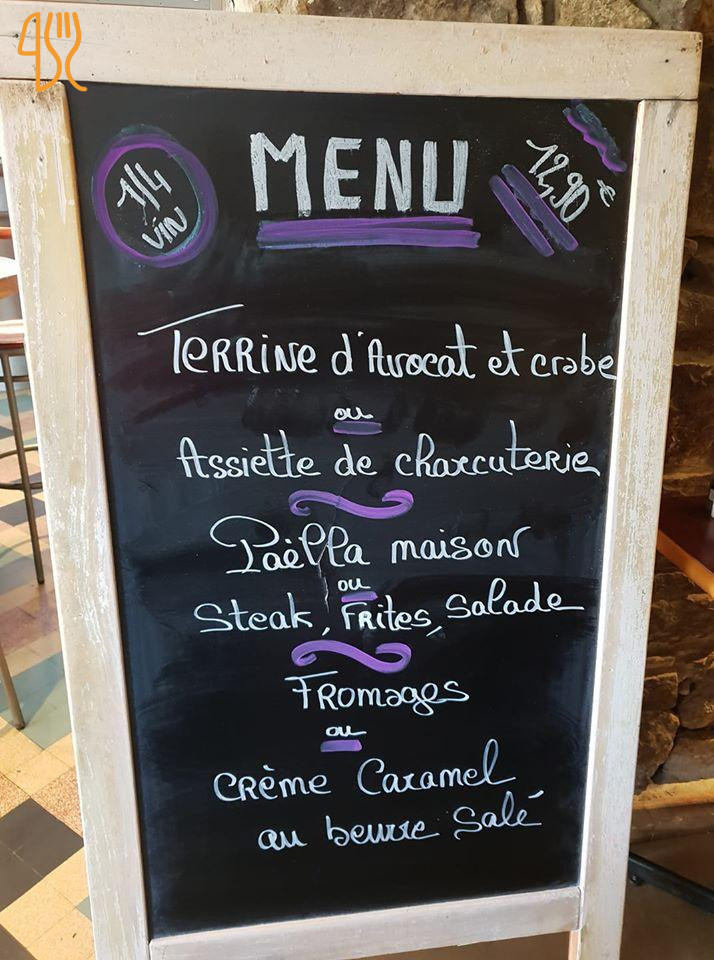 1/4
VIN
MENU
12,90 €
Terrine d'Avocat et crabe
ou
Assiette de charcuterie
Paëlla maison
ou
Steak, Frites, Salade
Fromages
ou
Crème Caramel
au beurre Salé